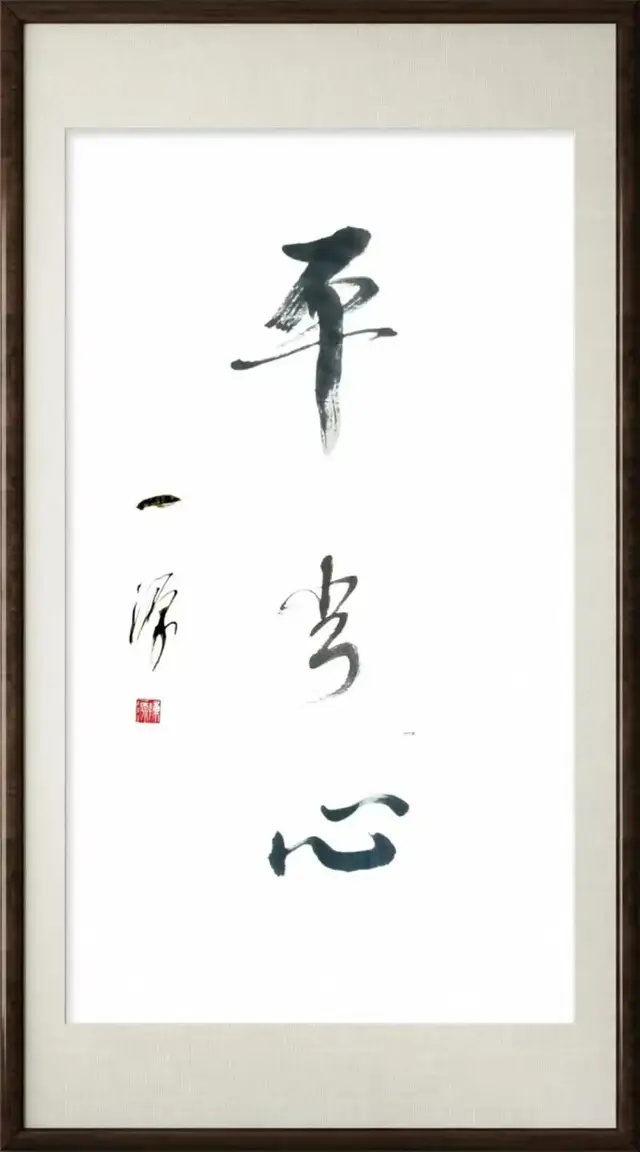 平常心
一源